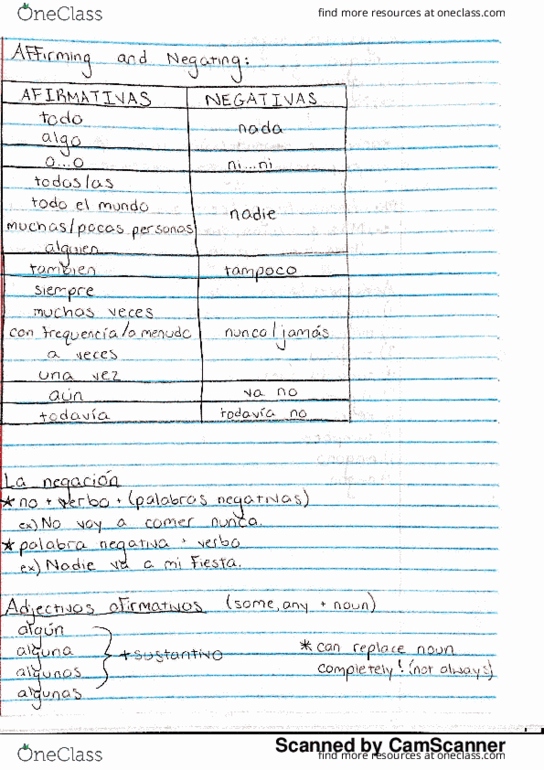 OneClass find more resources at oneclass.com
Affirming and Negating:
AFIRMATIVAS NEGATIVAS
todo
nada
algo
o...o ni...ni
todos/as
todo el mundo
nadie
muchas/pocas personas
alguien
también tampoco
siempre
muchas veces
con frequencia/a menudo nunca/jamás
a veces
una vez
aún ya no
todavía todavía no
La negación
*no + verbo + (palabras negativas)
ex) No voy a comer nunca.
*palabra negativa + verbo
ex) Nadie va a mi fiesta.
Adjectivos afirmativos (some, any + noun)
algún
alguna + sustantivo *can replace noun
algunos completely! (not always)
algunas
Scanned by CamScanner
OneClass find more resources at oneclass.com